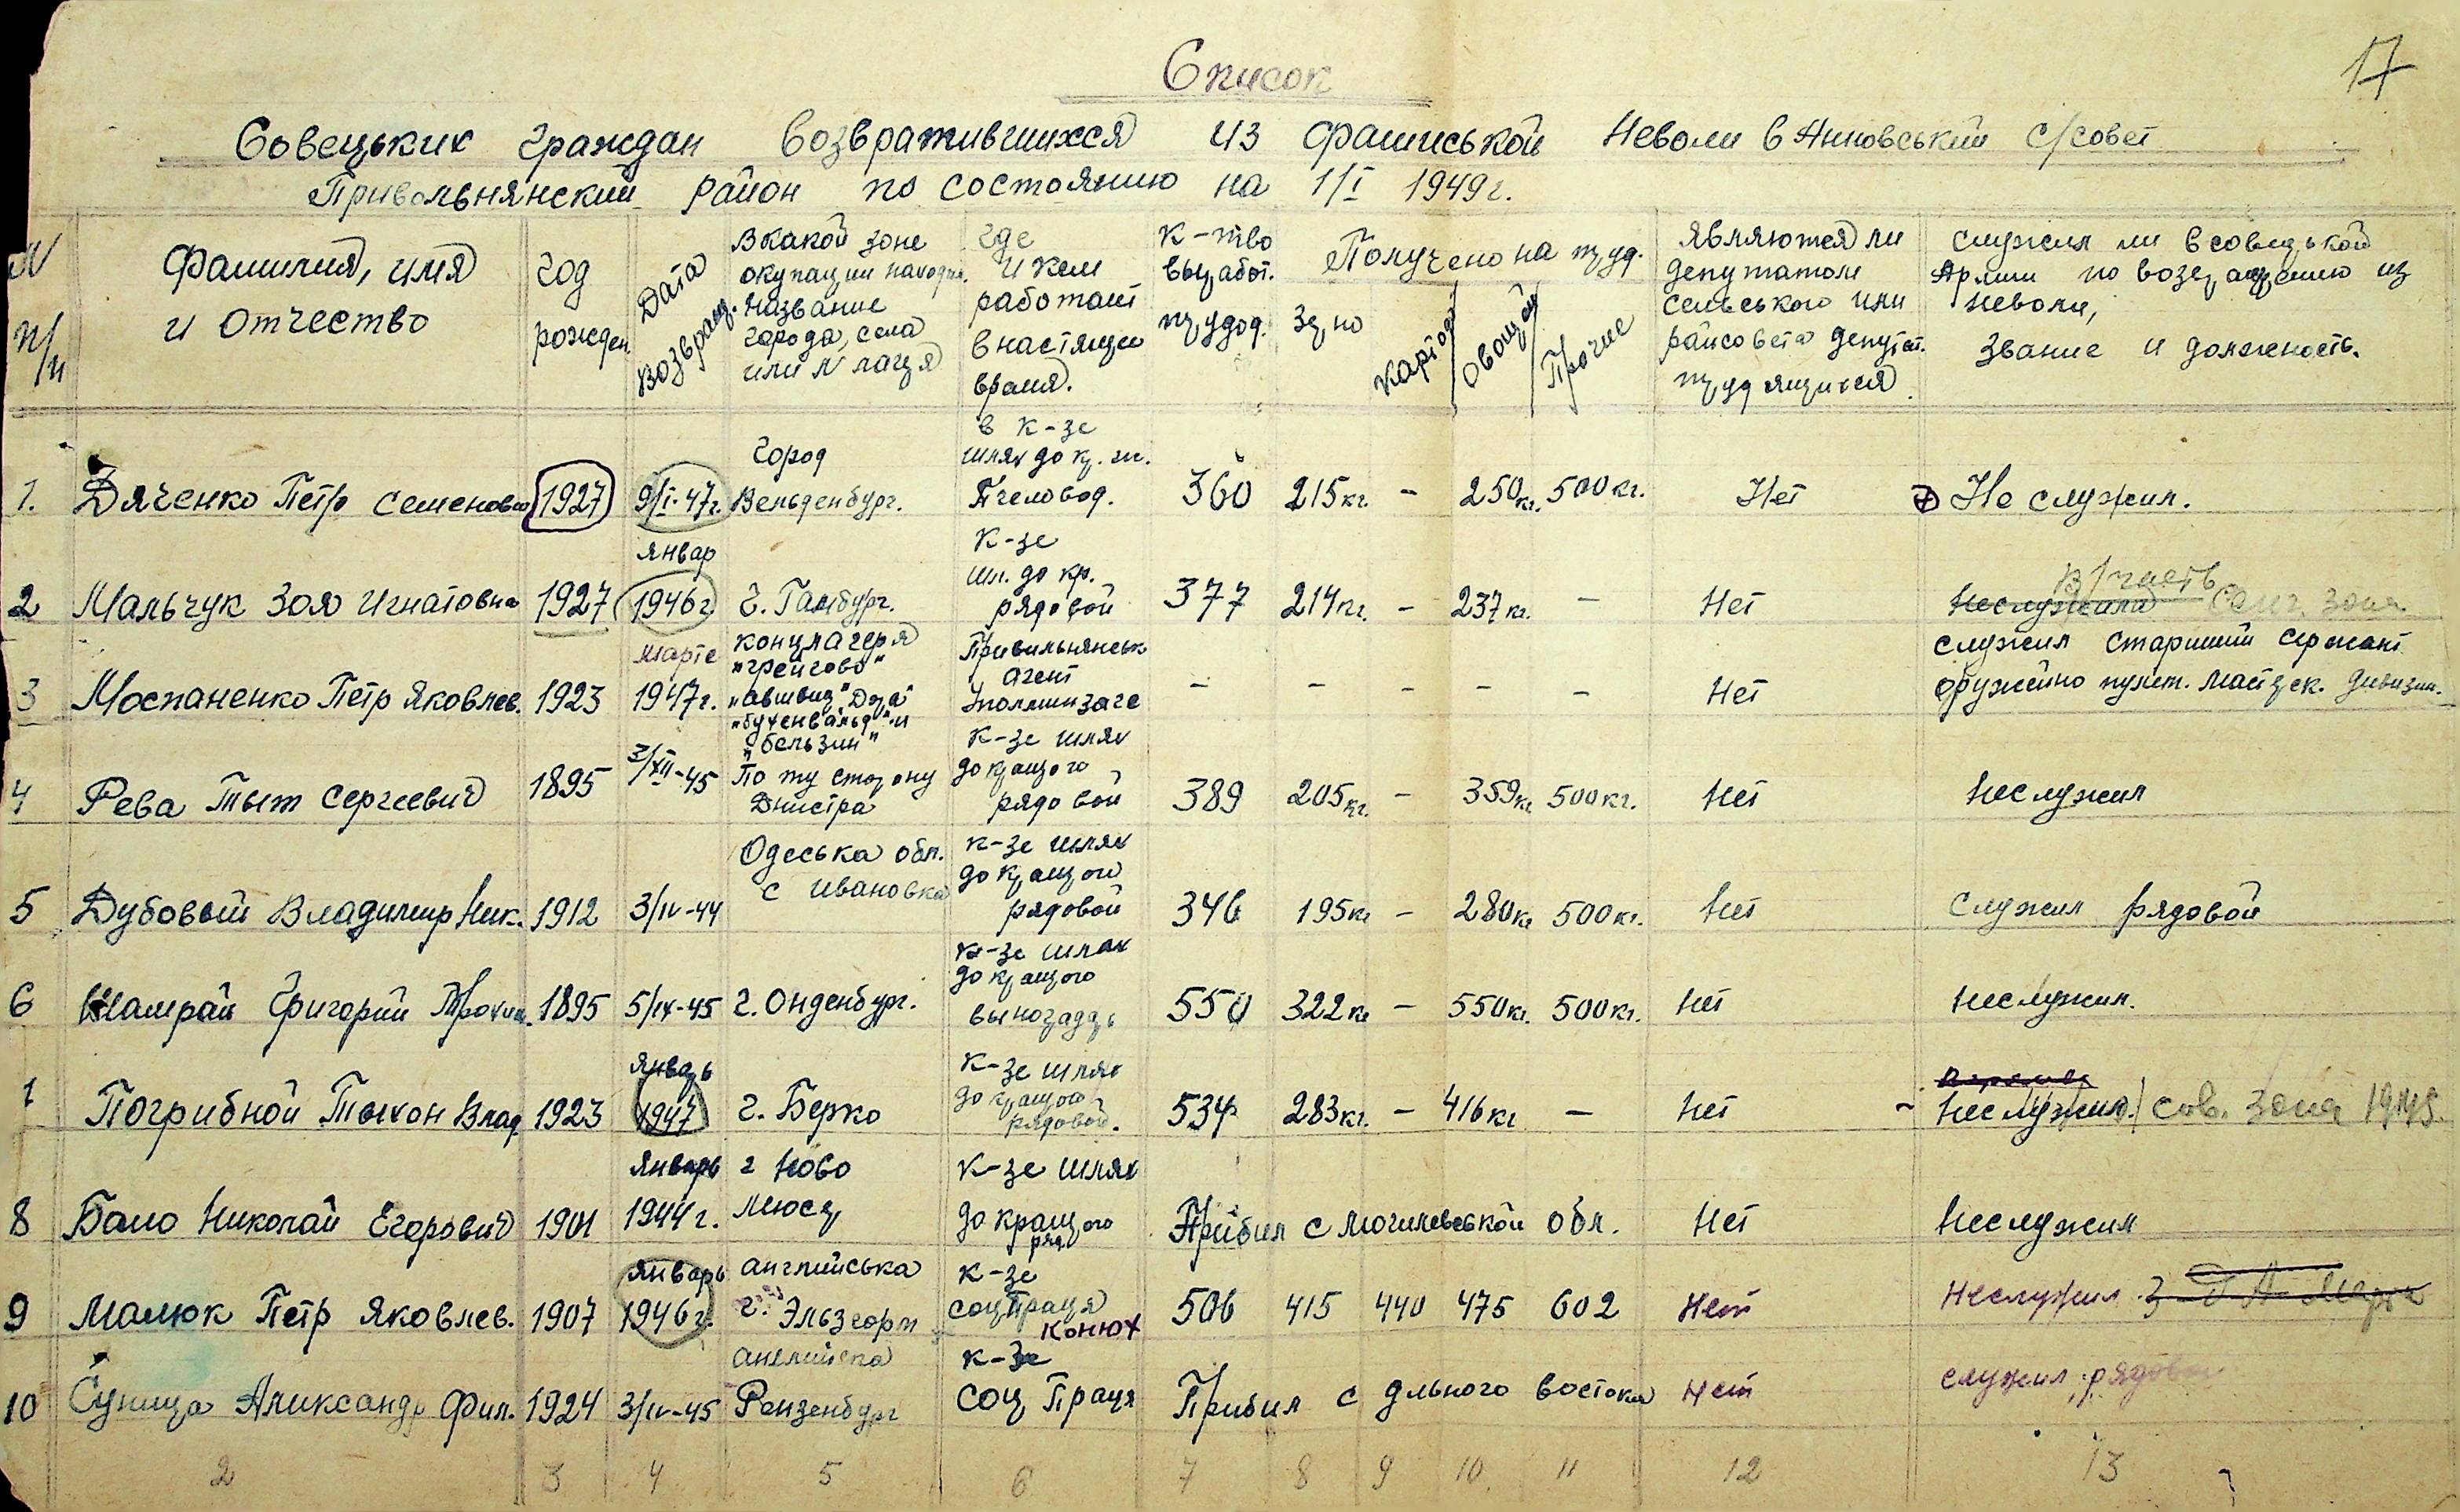 17
Список
Совецьких граждан возвражившихся из фашиськой Неволи в Анновський с/совет
Привольнянский район по состоянию на 1/I 1949г.
N п/п
Фамилия, имя и Отчество
год рожден.
Дата возвращ.
В какой зоне окупации находил. Название города, села или N лагря
где и кем работает в настяще время.
К-тво выработ. трудод.
Получено на труд.
Зерно
картоф
овощей
Прочие
являются ли депутатом сельського или райсовета депутат. трудящихся
служил ли в совецькой Армии по возвращению из неволи, звание и должность.
1. Дяченко Петр Семенович 1927 9/I-47г. город Вельденбург. в к-зе шлях до кр. ж. Пчеловод. 360 215кг. - 250кг. 500кг. Нет Не служил.
2 Мальчук Зоя Игнатовна 1927 январ 1946г г. Гамбург. К-зе шл. до кр. рядовой 377 214кг. - 237кг. - Нет неслужила В/часть
3 Моспаненко Петр Яковлев. 1923 марте 1947г. концлагеря "грейгово" "авшвиц" "Дора" "бухенвальд" и "бельзин" Привильнянськ агент Уполминзаге - - - - - Нет служил старший сержант оружейно пулет. дивизии.
4 Рева Тыт Сергеевич 1895 3/XII-45 По ту сторону Днистра к-зе шлях до кращого рядовой 389 205кг. - 359кг 500кг. Нет неслужил
5 Дубовый Владимир Ник. 1912 3/IV-44 Одеська обл. с Ивановка к-зе шлях до кращого рядовой 346 195кг - 280кг 500кг. Нет служил рядовой
6 Шамрай Григорий Трохим. 1895 5/IX-45 г. Онденбург. к-зе шлях до кращого 550 322кг - 550кг. 500кг. Нет неслужил.
1 Погрибной Тыхон Влад. 1923 январь 1947 г. Берко к-зе шлях до кращого рядовой. 534 283кг. - 416кг - Нет неслужил. сов. зона 1945.
8 Бало Николай Егорович 1901 январь 1944г. г Ново к-зе шлях до кращого ряд. Прибил с могилевськой обл. Нет неслужил
9 Малюк Петр Яковлев. 1907 январь 1946г. английська г. Эльзгорн к-зе соц Праця конюх 506 415 440 475 602 Нет Неслужил
10 Суница Александр Фил. 1924 3/IV-45 английска Рензенбург к-зе соц Праця Прибил с дльного востока Нет служил, рядовой
2 3 4 5 6 7 8 9 10 11 12 13